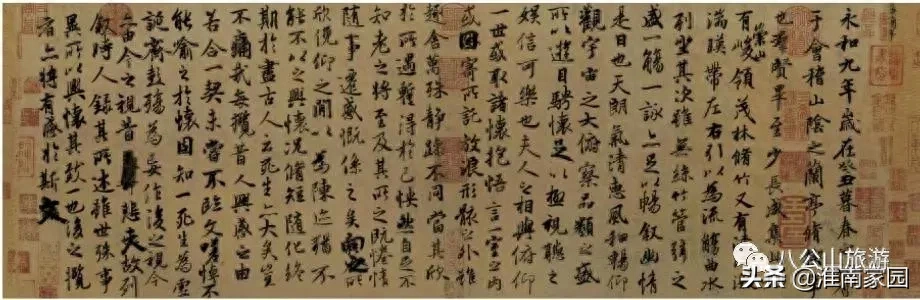 永和九年歲在癸丑暮春
于會稽山陰之蘭亭脩
也群賢畢至少長咸集
有崇山峻領茂林脩竹又有
湍暎帶左右引以為流觴曲水
列坐其次雖無絲竹管弦之
盛一觴一詠亦足以暢敘幽情
是日也天朗氣清惠風和暢仰
觀宇宙之大俯察品類之盛
所以遊目騁懷足以極視聽之
娛信可樂也夫人之相與俯仰
一世或取諸懷抱悟言一室之內
或因寄所託放浪形骸之外雖
趣舍萬殊靜躁不同當其欣
於所遇蹔得於己怏然自足不
知老之將至及其所之既惓情
隨事遷感慨係之矣向之所
欣俛仰之閒以為陳迹猶不
能不以之興懷況脩短隨化終
期於盡古人云死生亦大矣豈
不痛哉每攬昔人興感之由
若合一契未嘗不臨文嗟悼不
能喻之於懷固知一死生為虛
誕齊彭殤為妄作後之視今
亦由今之視昔悲夫故列
敘時人錄其所述雖世殊事
異所以興懷其致一也後之攬
者亦將有感於斯文
八公山旅游
头条@淮南家园